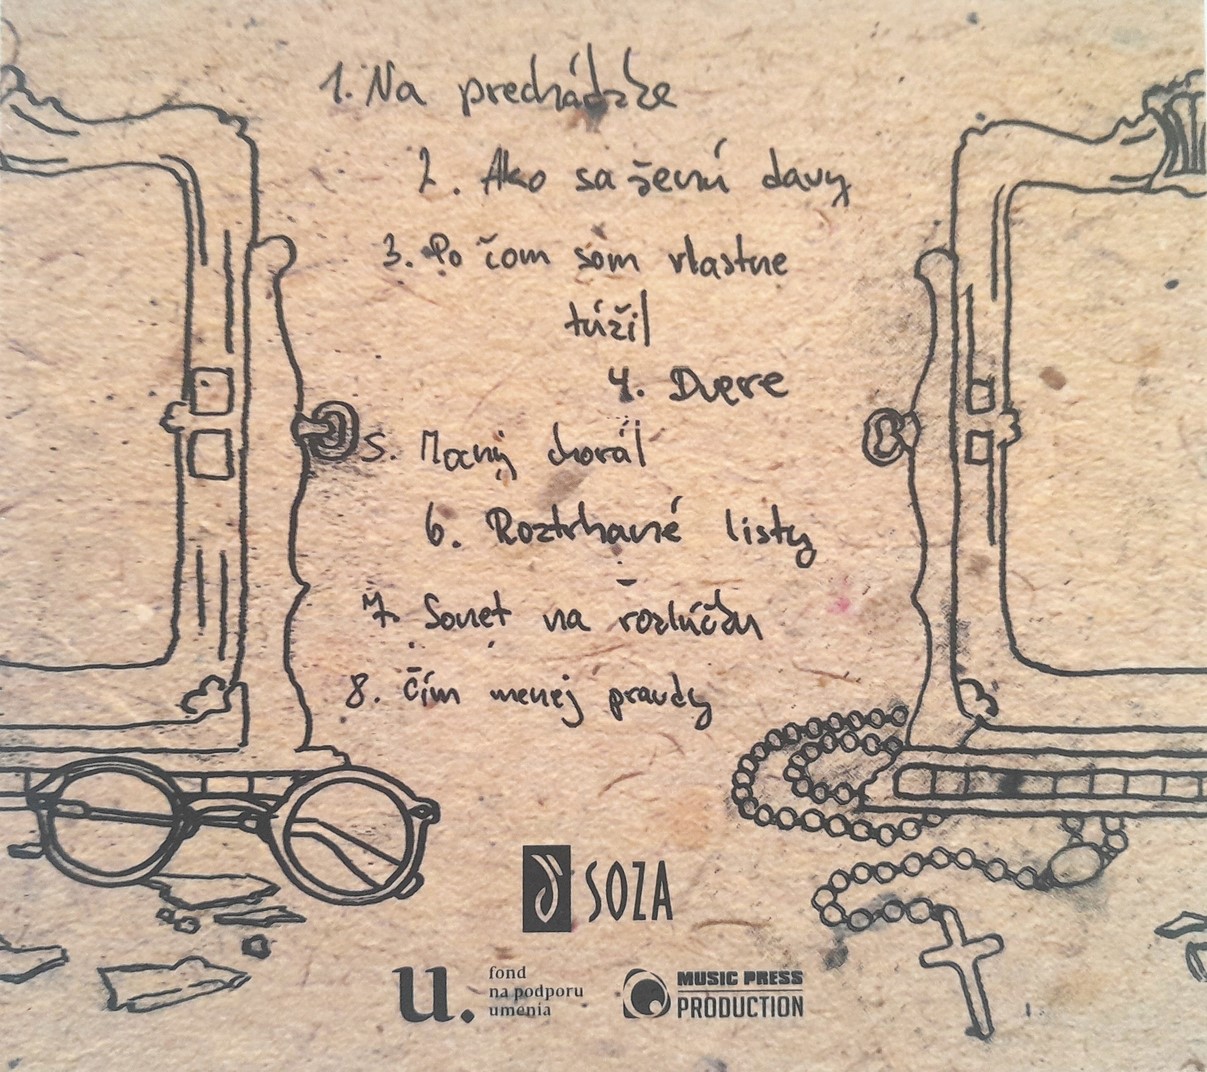 1. Na prechádzke
2. Ako sa ženú davy
3. Po čom som vlastne
túžil
4. Dvere
5. Mocný chorál
6. Roztrhané listy
7. Sonet na rozlúčku
8. Čím menej pravdy
SOZA
u. fond
na podporu
umenia
MUSIC PRESS
PRODUCTION